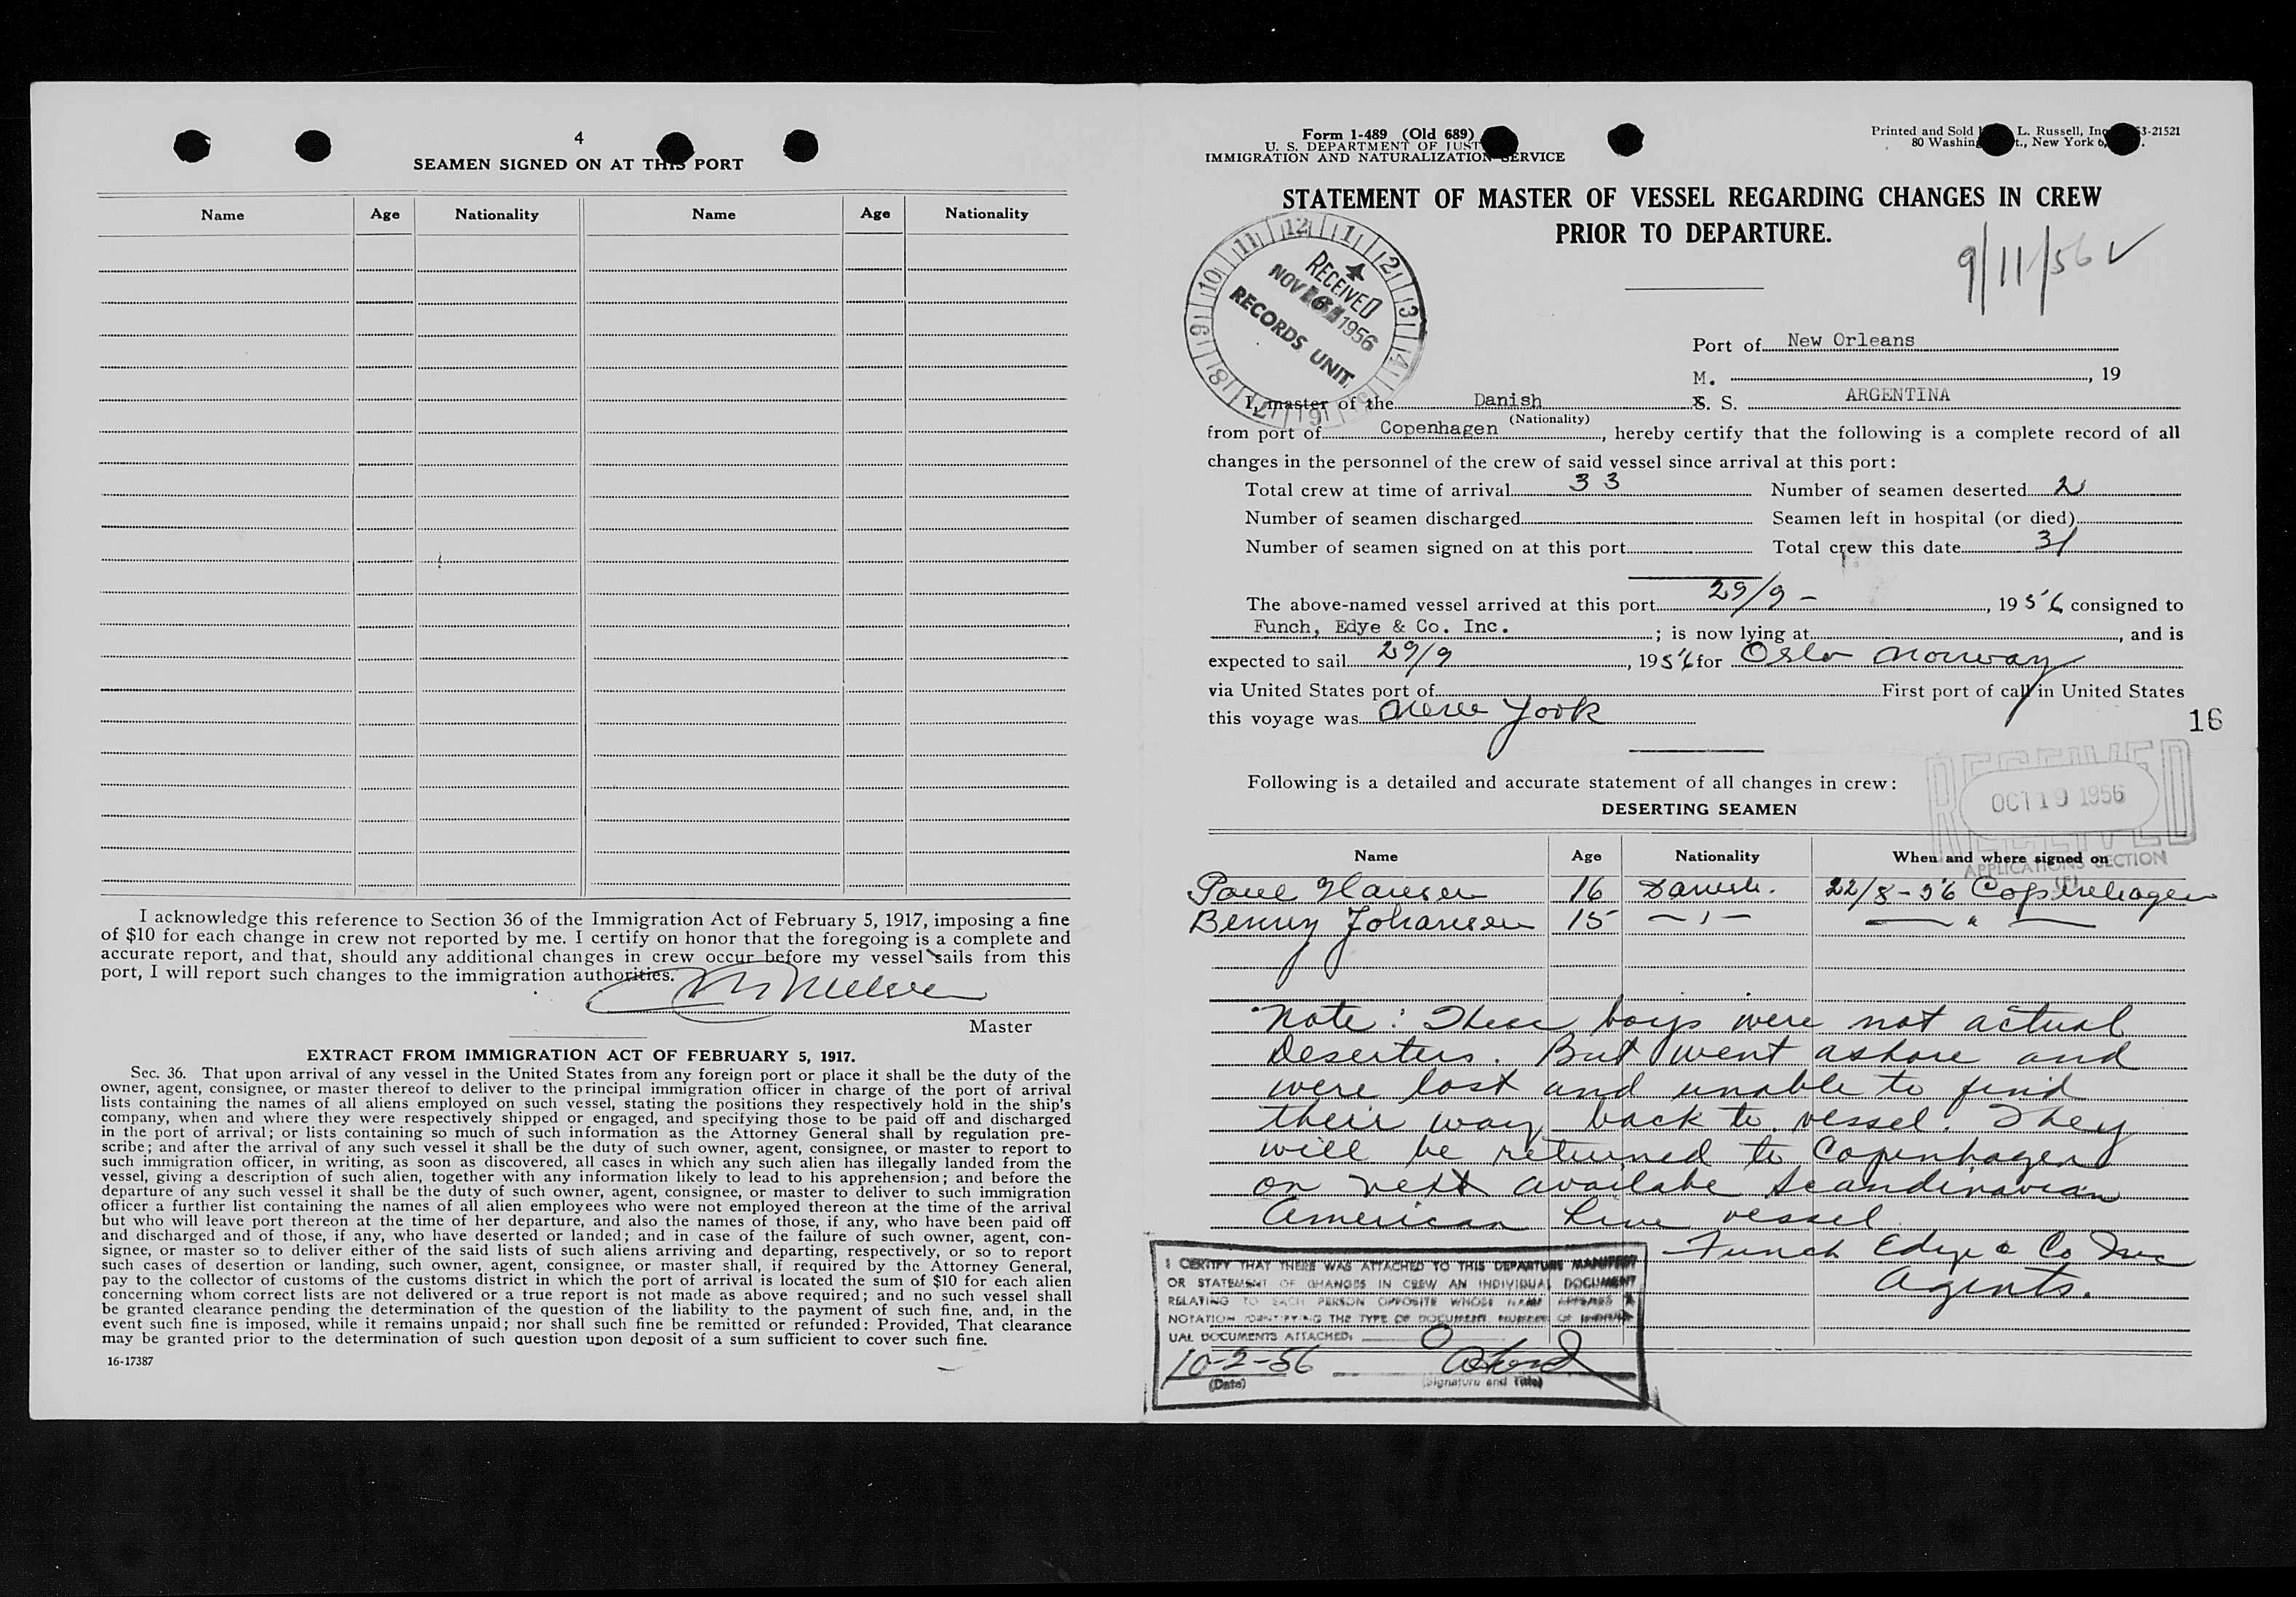 4
SEAMEN SIGNED ON AT THIS PORT
Name Age Nationality Name Age Nationality
I acknowledge this reference to Section 36 of the Immigration Act of February 5, 1917, imposing a fine
of $10 for each change in crew not reported by me. I certify on honor that the foregoing is a complete and
accurate report, and that, should any additional changes in crew occur before my vessel sails from this
port, I will report such changes to the immigration authorities.
Master
EXTRACT FROM IMMIGRATION ACT OF FEBRUARY 5, 1917.
Sec. 36. That upon arrival of any vessel in the United States from any foreign port or place it shall be the duty of the
owner, agent, consignee, or master thereof to deliver to the principal immigration officer in charge of the port of arrival
lists containing the names of all aliens employed on such vessel, stating the positions they respectively hold in the ship's
company, when and where they were respectively shipped or engaged, and specifying those to be paid off and discharged
in the port of arrival; or lists containing so much of such information as the Attorney General shall by regulation pre-
scribe; and after the arrival of any such vessel it shall be the duty of such owner, agent, consignee, or master to report to
such immigration officer, in writing, as soon as discovered, all cases in which any such alien has illegally landed from the
vessel, giving a description of such alien, together with any information likely to lead to his apprehension; and before the
departure of any such vessel it shall be the duty of such owner, agent, consignee, or master to deliver to such immigration
officer a further list containing the names of all alien employees who were not employed thereon at the time of the arrival
but who will leave port thereon at the time of her departure, and also the names of those, if any, who have been paid off
and discharged and of those, if any, who have deserted or landed; and in case of the failure of such owner, agent, con-
signee, or master so to deliver either of the said lists of such aliens arriving and departing, respectively, or so to report
such cases of desertion or landing, such owner, agent, consignee, or master shall, if required by the Attorney General,
pay to the collector of customs of the customs district in which the port of arrival is located the sum of $10 for each alien
concerning whom correct lists are not delivered or a true report is not made as above required; and no such vessel shall
be granted clearance pending the determination of the question of the liability to the payment of such fine, and, in the
event such fine is imposed, while it remains unpaid; nor shall such fine be remitted or refunded: Provided, That clearance
may be granted prior to the determination of such question upon deposit of a sum sufficient to cover such fine.
16-17387
Form 1-489 (Old 689)
U. S. DEPARTMENT OF JUST
IMMIGRATION AND NATURALIZATION SERVICE
Printed and Sold L. Russell, Inc 3-21521
80 Washing t., New York 6,
STATEMENT OF MASTER OF VESSEL REGARDING CHANGES IN CREW
PRIOR TO DEPARTURE.
9/11/56 ✓
RECEIVED
NOV 1956
RECORDS UNIT
Port of New Orleans
M. , 19
I, master of the Danish S. S. ARGENTINA
(Nationality)
from port of Copenhagen , hereby certify that the following is a complete record of all
changes in the personnel of the crew of said vessel since arrival at this port:
Total crew at time of arrival 33 Number of seamen deserted 2
Number of seamen discharged Seamen left in hospital (or died)
Number of seamen signed on at this port Total crew this date 31
The above-named vessel arrived at this port 29/9 - , 1956 consigned to
Funch, Edye & Co. Inc. ; is now lying at , and is
expected to sail 29/9 , 1956 for Oslo Norway
via United States port of First port of call in United States
this voyage was New York
16
Following is a detailed and accurate statement of all changes in crew:
DESERTING SEAMEN
RECEIVED
OCT 19 1956
APPLICATIONS SECTION
Name Age Nationality When and where signed on
Poul Hansen 16 Danish. 22/8-56 Copenhagen
Benny Johansen 15 — , — — " —
Note: These boys were not actual
Deserters. But went ashore and
were lost and unable to find
their way back to vessel. They
will be returned to Copenhagen
on next availabe Scandinavian
American Line vessel
Funch Edye & Co Inc
Agents.
I CERTIFY THAT THERE WAS ATTACHED TO THIS DEPARTURE MANIFEST
OR STATEMENT OF CHANGES IN CREW AN INDIVIDUAL DOCUMENT
RELATING TO EACH PERSON OPPOSITE WHOSE NAME APPEARS A
NOTATION IDENTIFYING THE TYPE OF DOCUMENT. NUMBER OF INDIVID-
UAL DOCUMENTS ATTACHED: O
10-2-56
(Date) (Signature and Title)